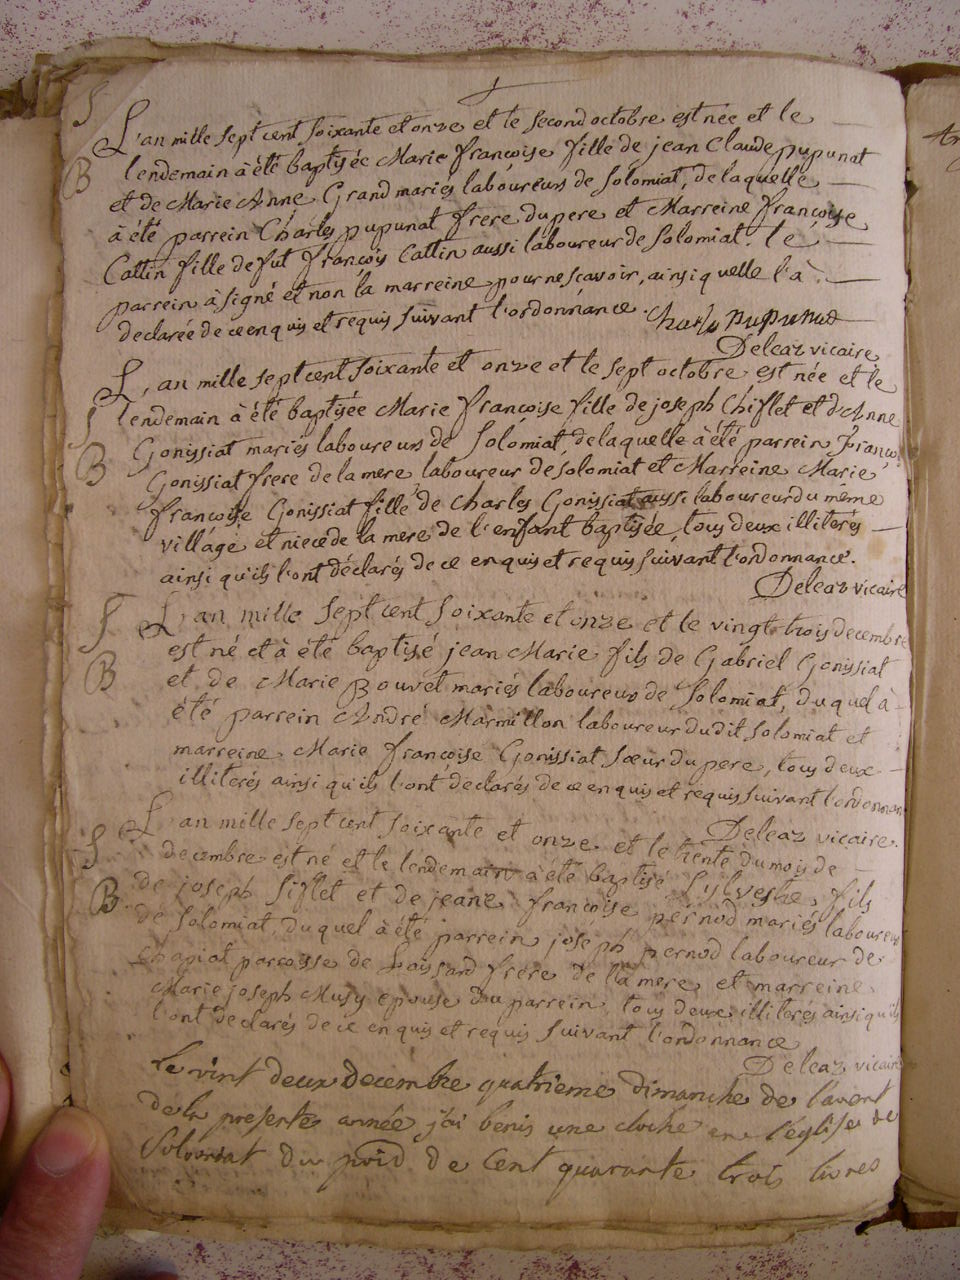 L'an mille sept cent soixante et onze et le second octobre est née et le
S
B
lendemain à été baptisée Marie françoise fille de jean Claude pupunat
et de Marie Anne Grand mariés laboureurs de Solomiat, de laquelle
à été parrein Charles pupunat frere du pere et Marreine françoise
Cattin fille de fut françois Cattin aussi laboureur de Solomiat. le
parrein à signé et non la marreine pour ne scavoir, ainsi quelle l'à
declarée de ce enquis et requis suivant l'ordonnance. Charle pupunat
Deleaz vicaire
L'an mille sept cent soixante et onze et le sept octobre est née et le
S
B
lendemain à été baptisée Marie françoise fille de joseph Chiflet et d'Anne
Gonissiat mariés laboureurs de Solomiat, de laquelle à été parrein françois
Gonissiat frere de la mere laboureur de Solomiat et Marreine Marie
françoise Gonissiat fille de Charles Gonissiat aussi laboureur du même
village et niece de la mere de l'enfant baptisée, tous deux illiterés
ainsi qu'ils l'ont déclarés de ce enquis et requis suivant l'ordonnance.
Deleaz vicaire
S
B
L'an mille sept cent soixante et onze et le vingt trois decembre
est né et à été baptisé jean Marie fils de Gabriel Gonissiat
et de Marie Bouvet mariés laboureurs de Solomiat, duquel à
été parrein André Marmillon laboureur dudit Solomiat et
marreine Marie françoise Gonissiat sœur du pere, tous deux
illiterés ainsi qu'ils l'ont declarés de ce enquis et requis suivant l'ordonnan
Deleaz vicaire.
S
B
L'an mille sept cent soixante et onze et le trente du mois de
decembre est né et le lendemain à été baptisé Sylvestre fils
de joseph Siflet et de jeane françoise pernod mariés laboureurs
de Solomiat, duquel à été parrein joseph pernod laboureur de
Chapiat paroisse de Loissard frere de la mere et marreine
Marie joseph Musy epouse du parrein, tous deux illiterés ainsi qu'ils
l'ont declarés de ce enquis et requis suivant l'ordonnance
Deleaz vicaire
Le vint deux decembre quatrieme dimanche de l'avent
de la presente année j'ai benis une cloche en l'église de
Solomiat du poid de Cent quarante trois livres